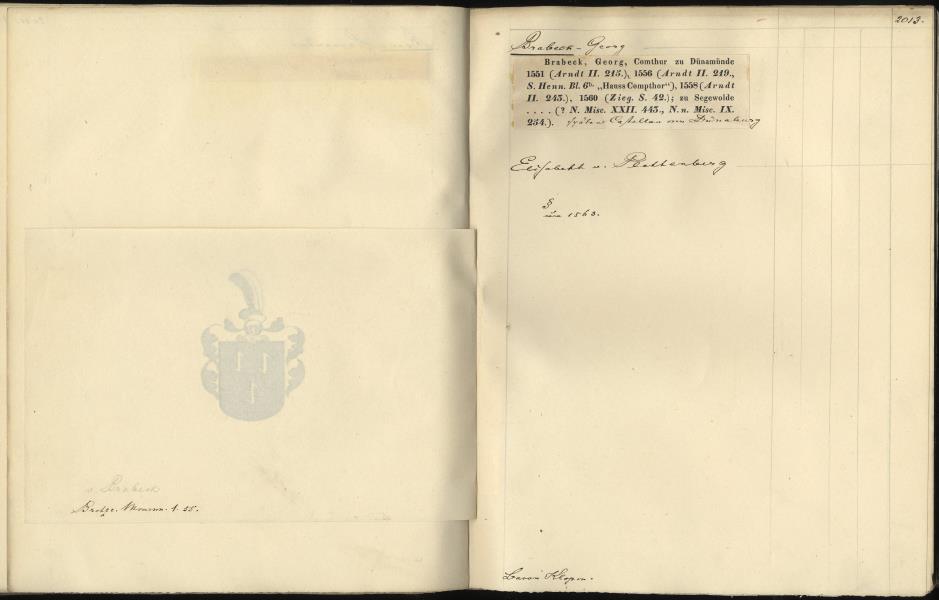 v. Brabeck
Brotze. Monum. 1. 25.
2013.
Brabeck - Georg
Brabeck, Georg, Comthur zu Dünamünde
1551 (Arndt II. 215.), 1556 (Arndt II. 219.,
S. Henn. Bl. 6b. „Hauss Compthor“), 1558 (Arndt
II. 243.), 1560 (Zieg. S. 42.); zu Segewolde
. . . . (? N. Misc. XXII. 443., N. n. Misc. IX.
254.). später Castellan von Dünaburg
Elisabeth v. Plettenberg
§
1563.
Baron Klopm.